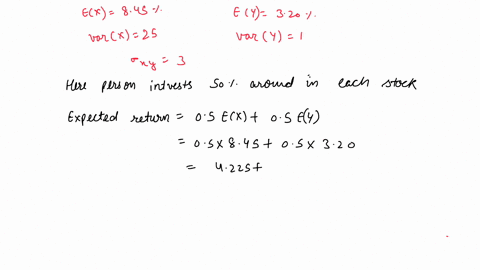 E(X) = 8.45 %. E(Y) = 3.20 %.
var(X) = 25 var(Y) = 1
σxy = 3
Here person intvests 50% around in each stock
Expected return = 0.5 E(X) + 0.5 E(Y)
= 0.5 x 8.45 + 0.5 x 3.20
= 4.225 +